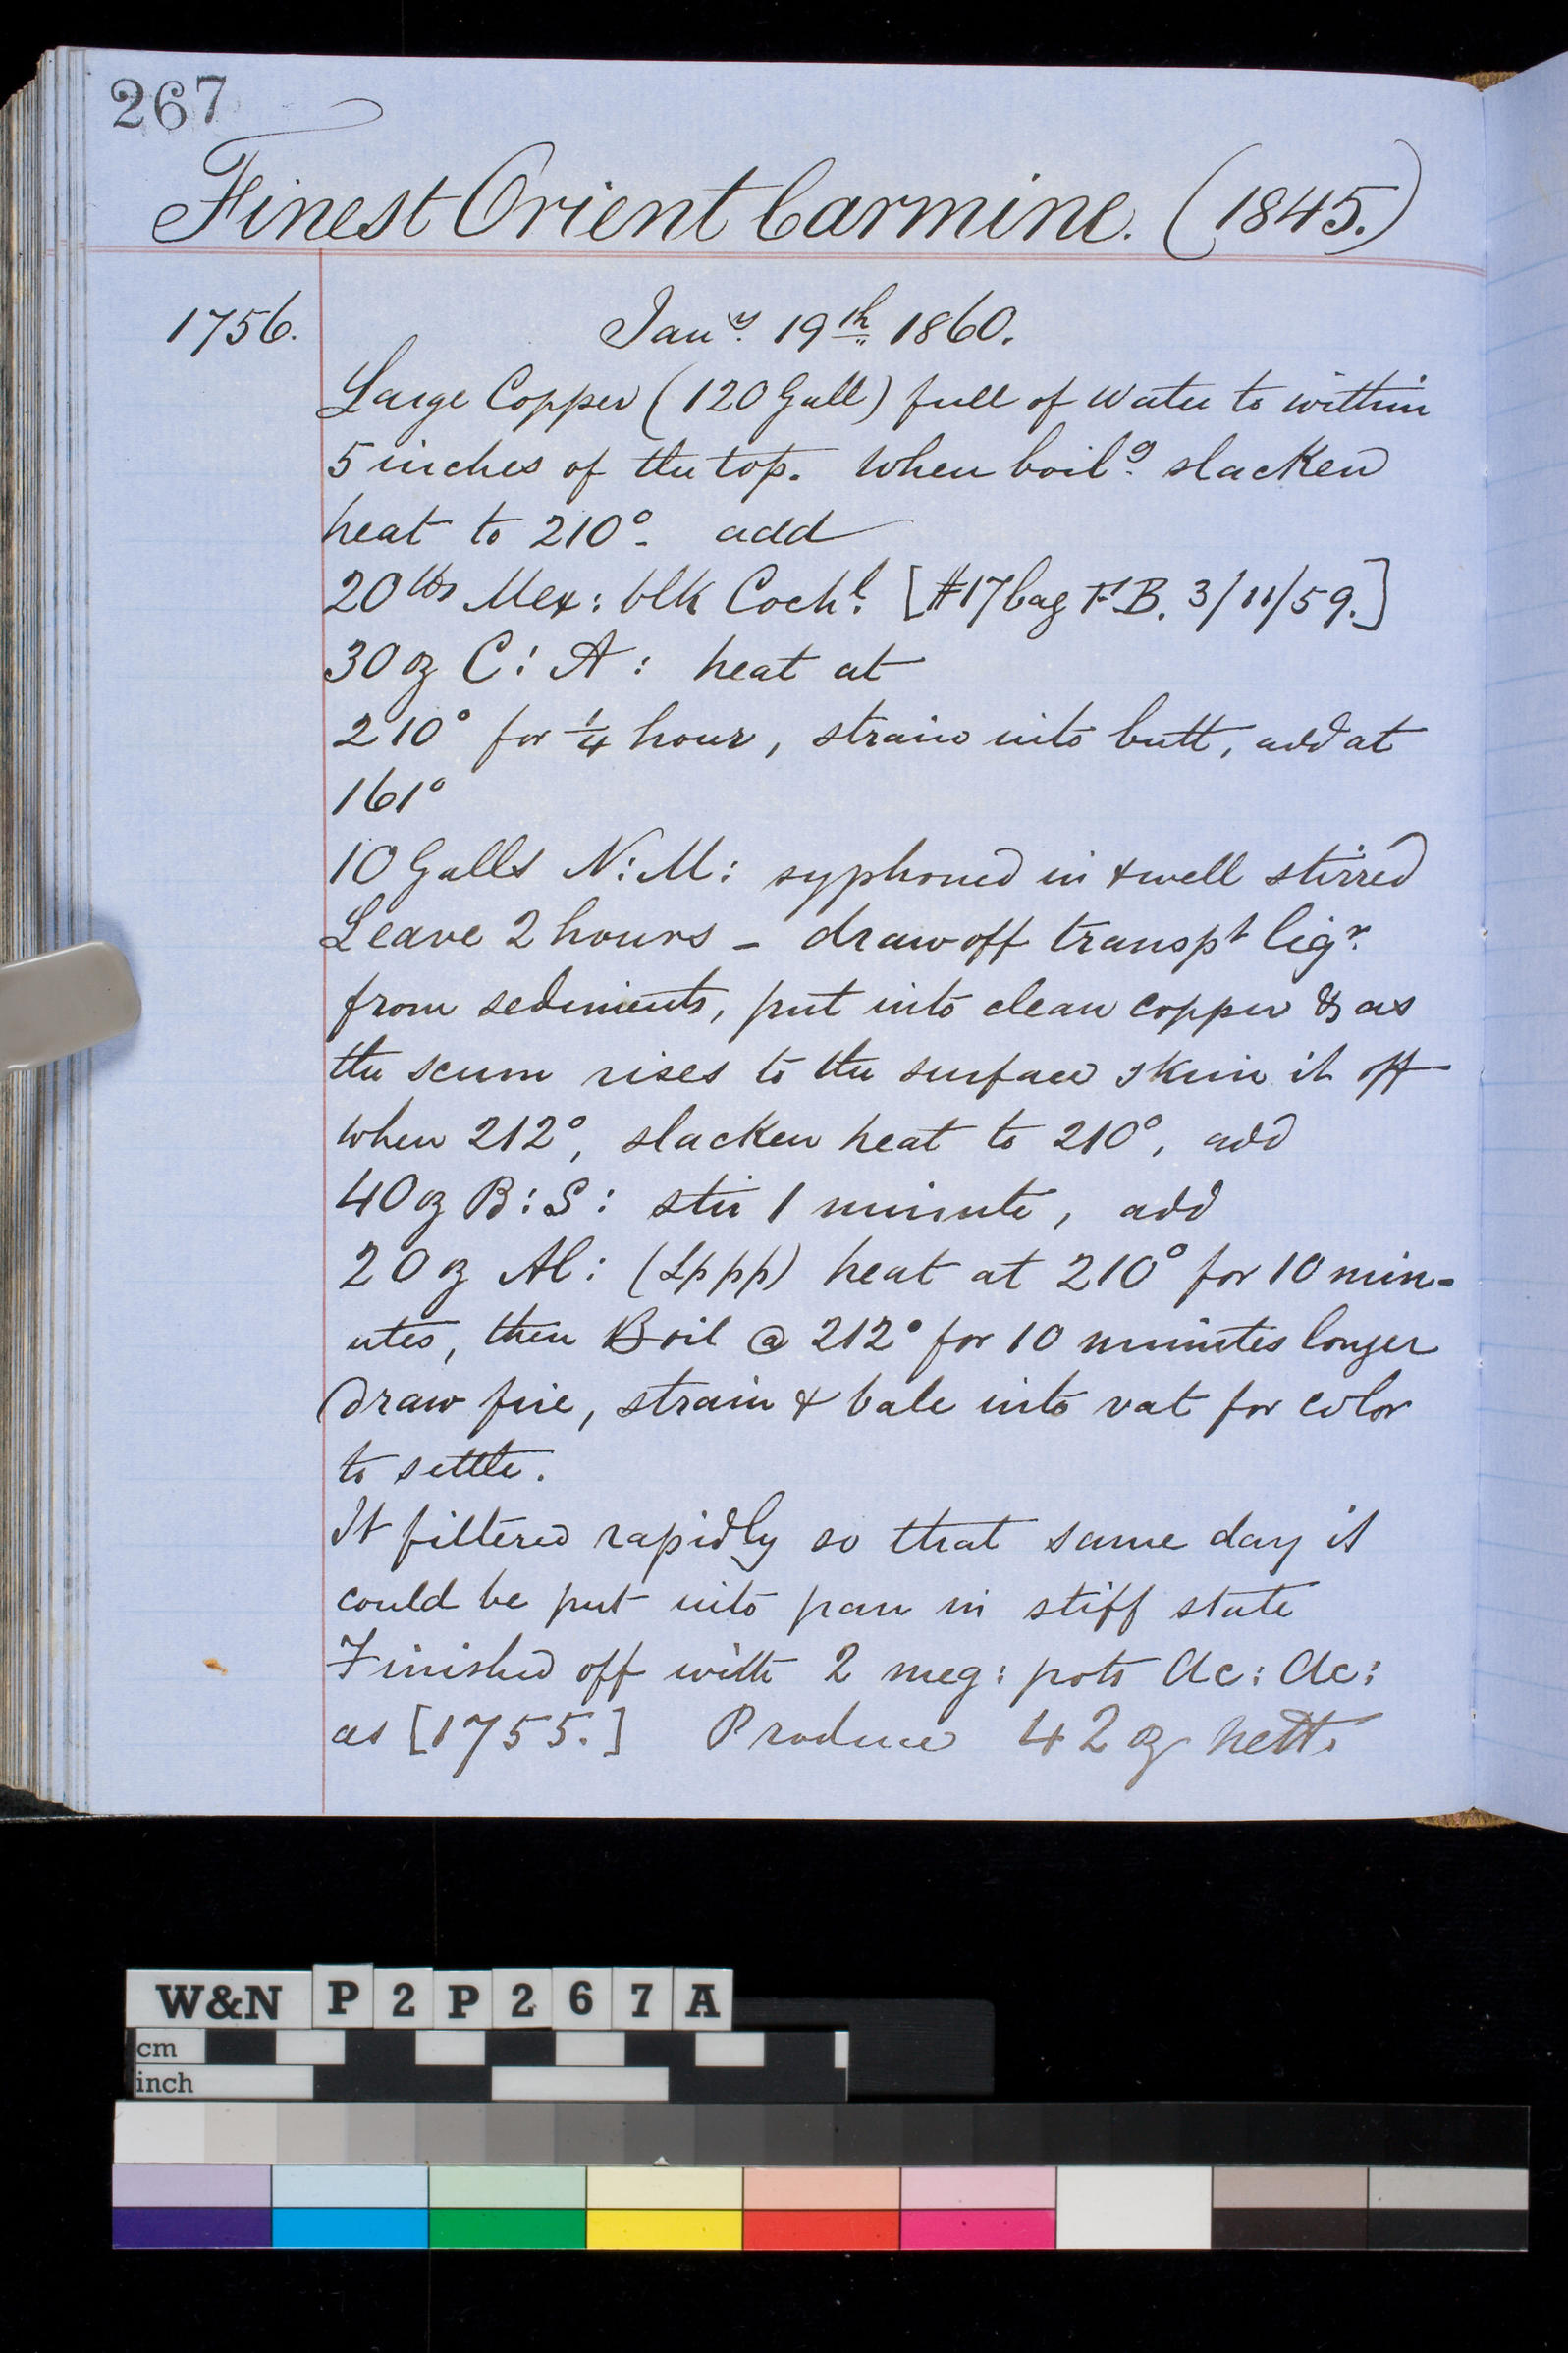 267
Finest Orient Carmine. (1845.)
1756. Jany. 19th 1860.
Large Copper (120 Gall) full of Water to within
5 inches of the top. When boilg. slacken
heat to 210°. add
20 lbs Mex: blk Cochl. [#17 bag F.B. 3/11/59.]
30 oz C: A: heat at
210° for 1/4 hour, strain into butt, add at
161°
10 Galls N: M: syphoned in & well stirred
Leave 2 hours - draw off transpt liqr.
from sediments, put into clean copper & as
the scum rises to the surface skim it off
when 212°, slacken heat to 210°, add
40 oz B: S: stir 1 minute, add
20 oz Al: (Lppp) heat at 210° for 10 min-
utes, then Boil @ 212° for 10 minutes longer
draw fire, strain & bale into vat for color
to settle.
It filtered rapidly so that same day it
could be put into pan in stiff state
Finished off with 2 meg: pots Ac: Ac:
as [1755.] Produce 42 oz nett.
W&N P2P267A
cm
inch